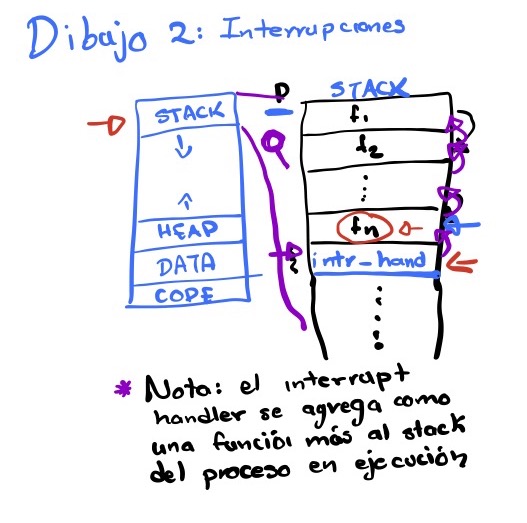 Dibujo 2: Interrupciones
STACK
HEAP
DATA
CODE
P
STACK
f1
f2
fn
intr_hand
* Nota: el interrupt
handler se agrega como
una función más al stack
del proceso en ejecución